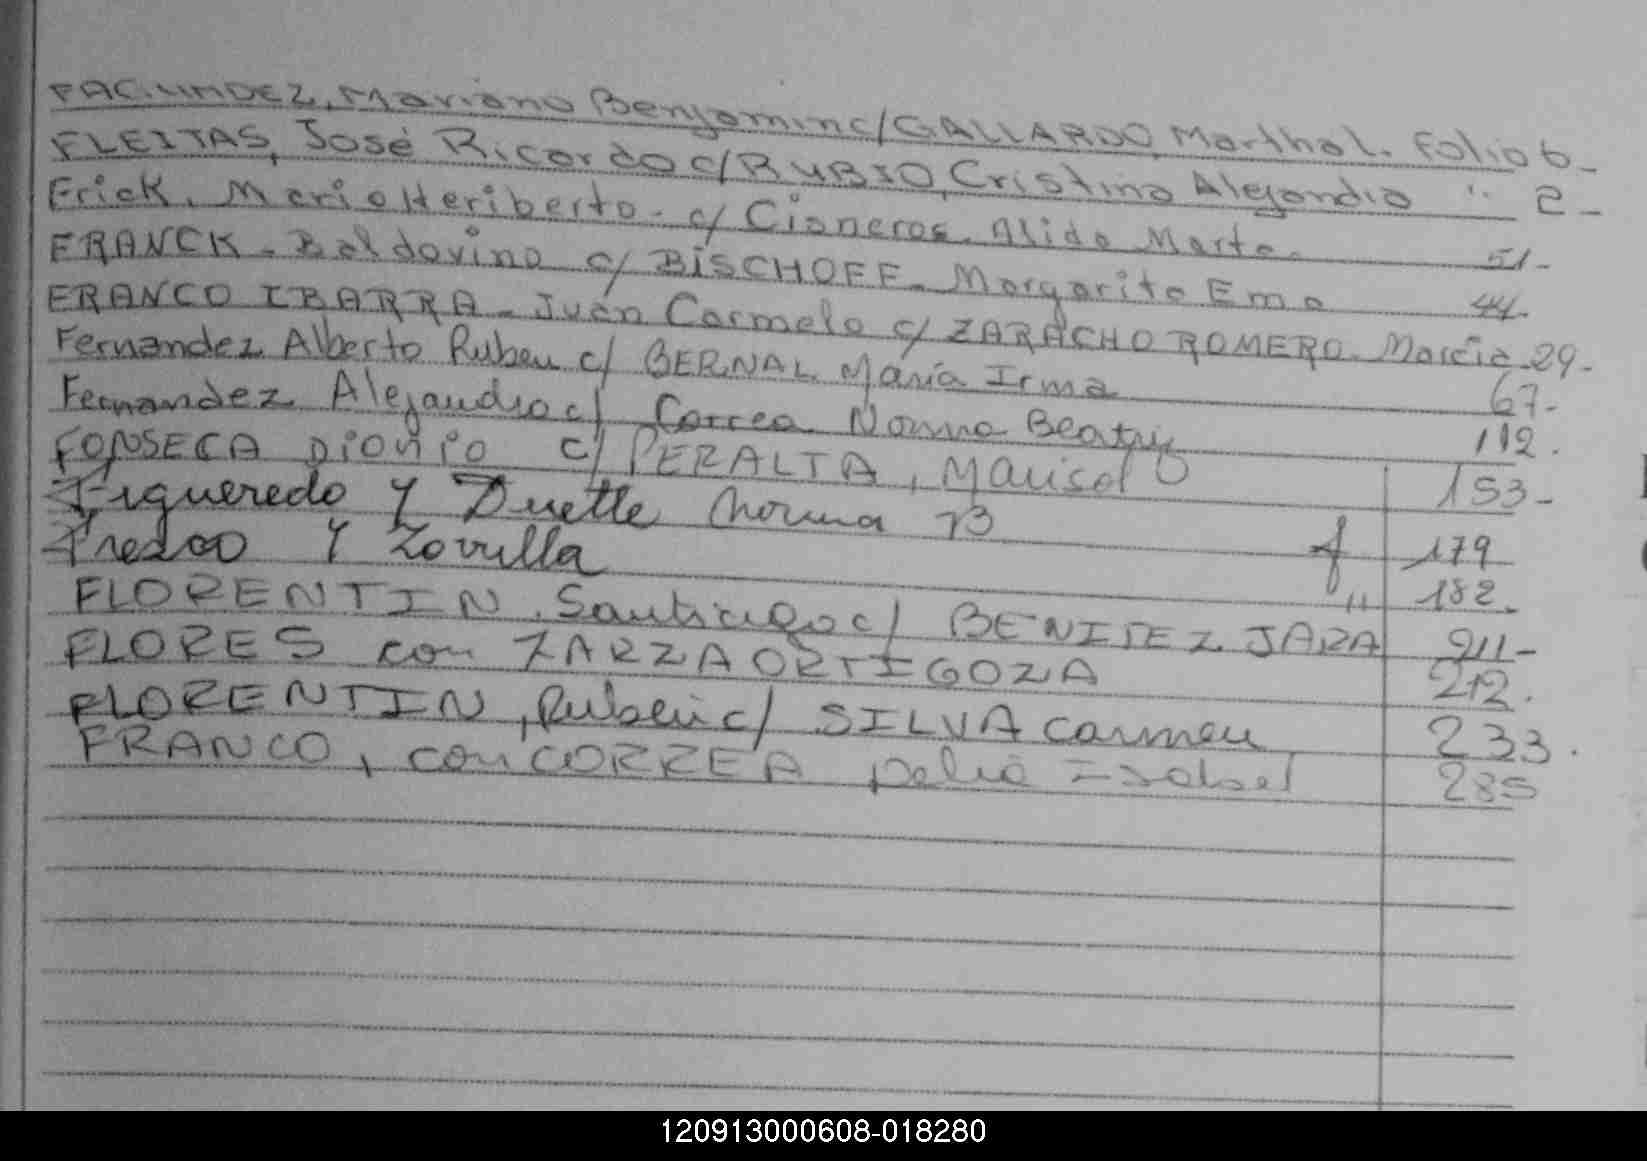 FACUNDEZ, Mariano Benjamin c/ GALLARDO Martha L. Folio 6-
FLEITAS, José Ricardo c/ RUBIO, Cristina Alejandra " 2-
Frick, Mario Heriberto - c/ Cisneros, Alida Marta. 51-
FRANCK - Baldovino c/ BISCHOFF - Margarita Ema 44-
FRANCO IBARRA - Juan Carmelo c/ ZARACHO ROMERO. Marcia 29-
Fernandez Alberto Ruben c/ BERNAL Maria Irma 67-
Fernandez Alejandro c/ Correa Norma Beatriz 112.
FONSECA Dionicio c/ PERALTA, Marisol 153-
Figueredo y Duette Norma B f 179
y Zorrilla " 182.
FLORENTIN, Santiago c/ BENITEZ JARA 211-
FLORES con ZARZA ORTIGOZA 212.
FLORENTIN, Ruben c/ SILVA Carmen 233.
FRANCO, con CORREA Delia Isabel 285
120913000608-018280